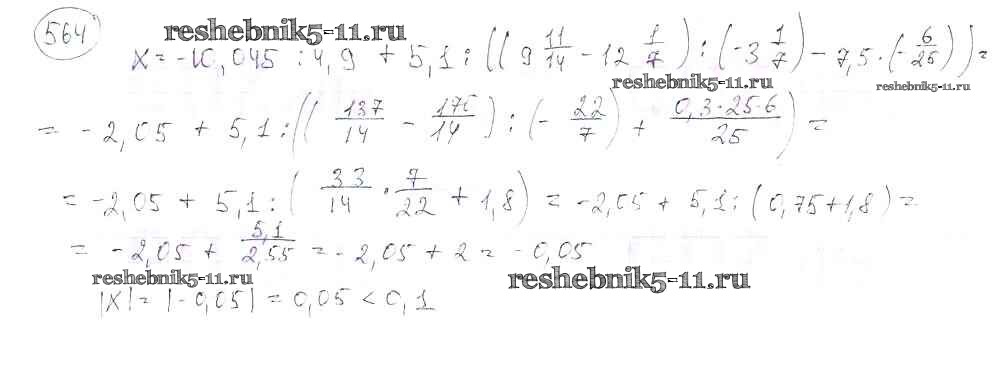 564 reshebnik5-11.ru
X = -10,045 : 4,9 + 5,1 : ((9 11/14 - 12 1/7) : (-3 1/7) - 7,5 · (-6/25)) =
reshebnik5-11.ru reshebnik5-11.ru
= -2,05 + 5,1 : ((137/14 - 170/14) : (-22/7) + 0,3·25·6/25) =
= -2,05 + 5,1 : (33/14 · 7/22 + 1,8) = -2,05 + 5,1 : (0,75 + 1,8) =
= -2,05 + 5,1/2,55 = -2,05 + 2 = -0,05
reshebnik5-11.ru reshebnik5-11.ru
|X| = |-0,05| = 0,05 < 0,1